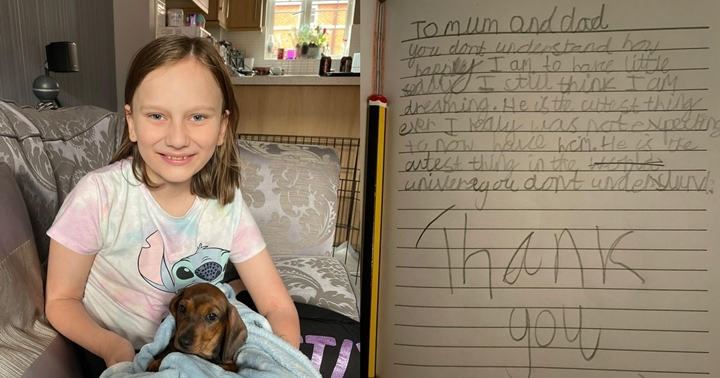 To mum and dad
you dont understand how
happy I am to have little
I still think I am
dreaming. He is the cutest thing
ever I realy was not expecting
to now have him. He is the
cutest thing in the
universe you dont understand.
Thank
you